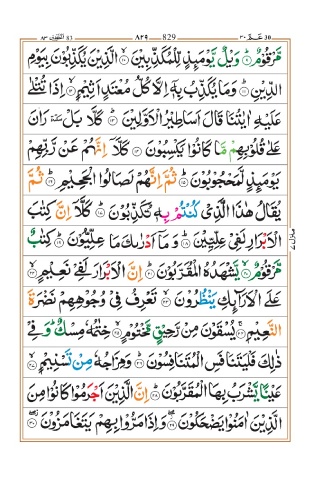 عمّ ٣٠ 829 ٨٢٩ المطففين ٨٣
مَّرْقُوْمٌ ؕ‏ ﴿۹﴾ وَيْلٌ يَّوْمَئِذٍ لِّلْمُكَذِّبِيْنَ ۙ‏ ﴿۱۰﴾ الَّذِيْنَ يُكَذِّبُوْنَ بِيَوْمِ
الدِّيْنِ ؕ‏ ﴿۱۱﴾ وَمَا يُكَذِّبُ بِهٖۤ اِلَّا كُلُّ مُعْتَدٍ اَثِيْمٍ ۙ‏ ﴿۱۲﴾ اِذَا تُتْلٰى
عَلَيْهِ اٰيٰتُنَا قَالَ اَسَاطِيْرُ الْاَوَّلِيْنَ ؕ‏ ﴿۱۳﴾ كَلَّا بَلْ ٚ سكتة رَانَ
عَلٰى قُلُوْبِهِمْ مَّا كَانُوْا يَكْسِبُوْنَ‏ ﴿۱۴﴾ كَلَّاۤ اِنَّهُمْ عَنْ رَّبِّهِمْ
يَوْمَئِذٍ لَّمَحْجُوْبُوْنَ ؕ‏ ﴿۱۵﴾ ثُمَّ اِنَّهُمْ لَصَالُوا الْجَحِيْمِ ؕ‏ ﴿۱۶﴾ ثُمَّ
يُقَالُ هٰذَا الَّذِىْ كُنْتُمْ بِهٖ تُكَذِّبُوْنَ ؕ‏ ﴿۱۷﴾ كَلَّاۤ اِنَّ كِتٰبَ
الْاَبْرَارِ لَفِىْ عِلِّيِّيْنَ ؕ‏ ﴿۱۸﴾ وَمَاۤ اَدْرٰٮكَ مَا عِلِّيُّوْنَ ؕ‏ ﴿۱۹﴾ كِتٰبٌ
مَّرْقُوْمٌ ۙ‏ ﴿۲۰﴾ يَّشْهَدُهُ الْمُقَرَّبُوْنَ ؕ‏ ﴿۲۱﴾ اِنَّ الْاَبْرَارَ لَفِىْ نَعِيْمٍ ۙ‏ ﴿۲۲﴾
عَلَى الْاَرَآئِكِ يَنْظُرُوْنَ ۙ‏ ﴿۲۳﴾ تَعْرِفُ فِىْ وُجُوْهِهِمْ نَضْرَةَ
النَّعِيْمِ ۚ‏ ﴿۲۴﴾ يُسْقَوْنَ مِنْ رَّحِيْقٍ مَّخْتُوْمٍ ۙ‏ ﴿۲۵﴾ خِتٰمُهٗ مِسْكٌ ؕ وَفِىْ
ذٰلِكَ فَلْيَتَنَافَسِ الْمُتَنٰفِسُوْنَ ؕ‏ ﴿۲۶﴾ وَمِزَاجُهٗ مِنْ تَسْنِيْمٍ ۙ‏ ﴿۲۷﴾
عَيْنًا يَّشْرَبُ بِهَا الْمُقَرَّبُوْنَ ؕ‏ ﴿۲۸﴾ اِنَّ الَّذِيْنَ اَجْرَمُوْا كَانُوْا مِنَ
الَّذِيْنَ اٰمَنُوْا يَضْحَكُوْنَ ۖ‏ ﴿۲۹﴾ وَاِذَا مَرُّوْا بِهِمْ يَتَغَامَزُوْنَ ۖ‏ ﴿۳۰﴾
منزل ٧